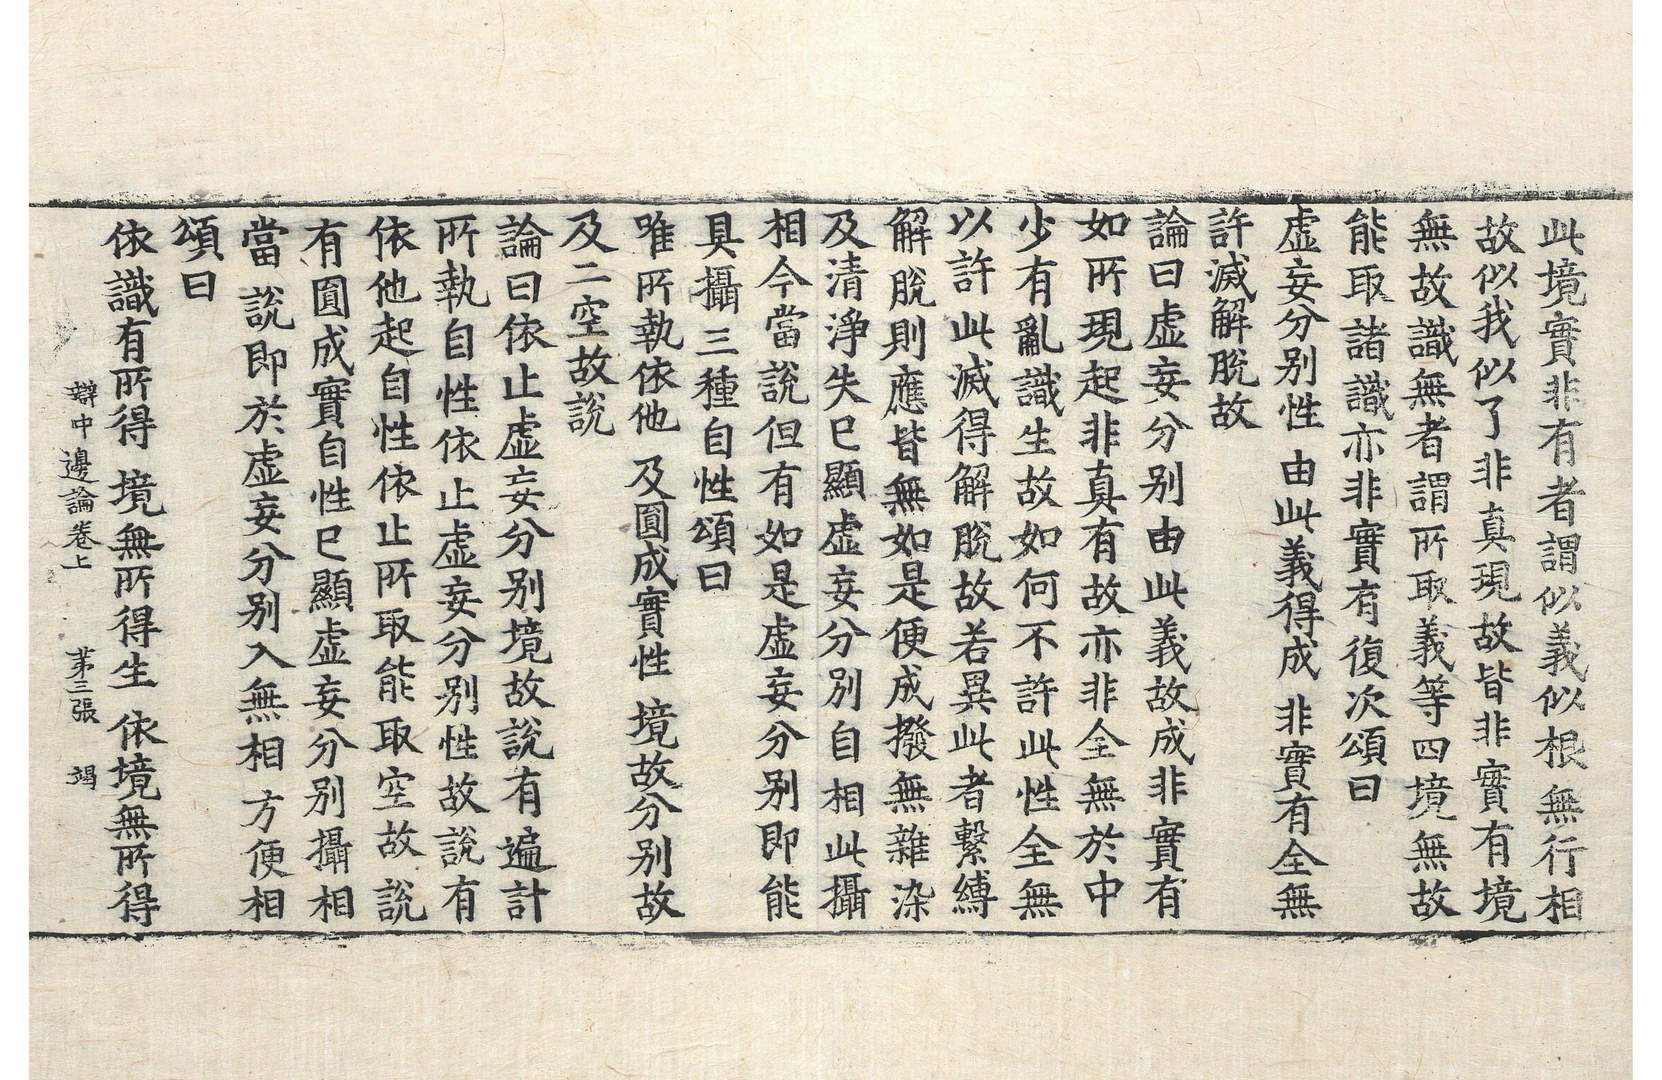 此境實非有者謂似義似根無行相
故似我似了非真現故皆非實有境
無故識無者謂所取義等四境無故
能取諸識亦非實有復次頌曰
虛妄分別性 由此義得成 非實有全無
許滅解脫故
論曰虛妄分別由此義故成非實有
如所現起非真有故亦非全無於中
少有亂識生故如何不許此性全無
以許此滅得解脫故若異此者繫縛
解脫則應皆無如是便成撥無雜染
及清淨失已顯虛妄分別自相此攝
相今當說但有如是虛妄分別即能
具攝三種自性頌曰
唯所執依他 及圓成實性 境故分別故
及二空故說
論曰依止虛妄分別境故說有遍計
所執自性依止虛妄分別性故說有
依他起自性依止所取能取空故說
有圓成實自性已顯虛妄分別攝相
當說即於虛妄分別入無相方便相
頌曰
依識有所得 境無所得生 依境無所得
辯中邊論卷上 第三張 竭